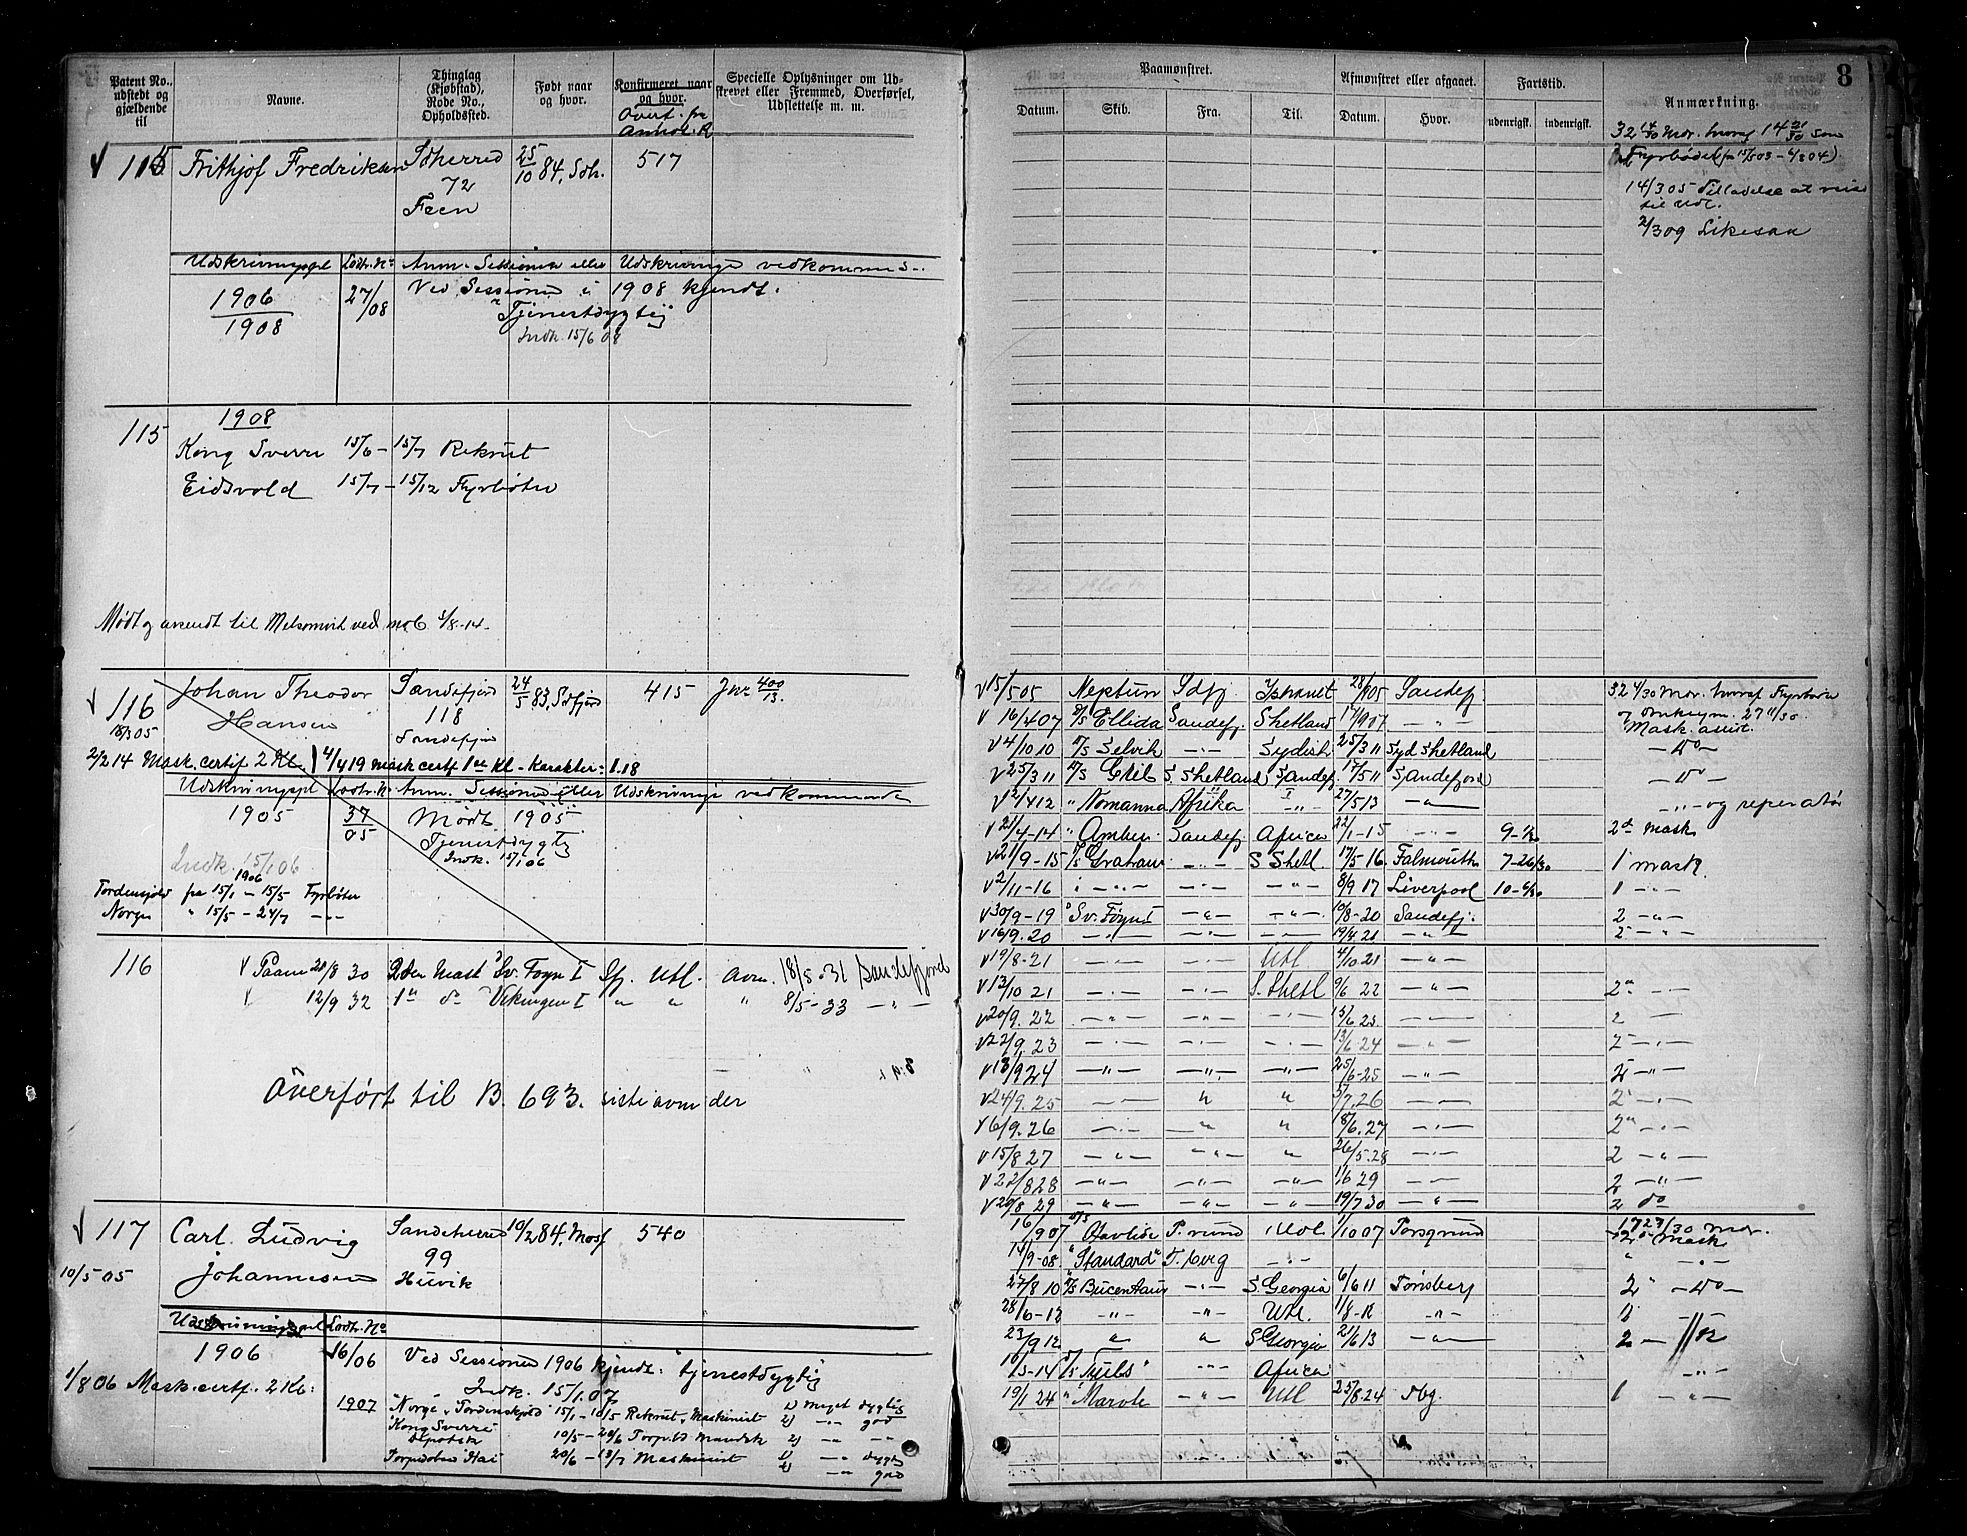 Patent No., udstedt og gjældende til
Navne.
Thinglag (Kjøbstad), Rode No., Opholdssted.
Født naar og hvor.
Konfirmeret naar og hvor.
Overf. fra Annot. R
Specielle Oplysninger om Udskrevet eller Fremmed, Overførsel, Udslettelse m. m.
115 Frithjof Fredriksen Sdherred 25/10 84, Sdh. 517
72
Feen
Udskrivningspl Lodtr. No Anm. Sessionen eller Udskrivninge vedkommes.
1906 27/08 Ved Sessionen i 1908 kjendt.
1908 Tjenestdygtig
Indk. 15/6 08
1908
115
Kong Sverre 15/6 – 15/7 Rekrut
Eidsvold 15/7 – 15/12 Fyrbøter
Mødt og avsendt til Melsomvik ved mob. 4/8-14-
116 Johan Theodor Sandefjord 24/5 83, Sdfjord 415 Jnr 400/13.
Hansen 118
18/3 05 Sandefjord
2/2 14 Mask. certif 2 Kl. 4/4 19 mask certf 1ste Kl - Karakter: 1.18
Udskrivningspl Lodtr. No Anm. Sessionen eller Udskrivninge vedkommende
1905 37/05 Mødt 1905
Tjenestdygtig
Indk. 15/1 06 Indk. 15/1 06
1906
Tordenskjold fra 15/1 – 15/5 Fyrbøter
Norge " 15/5 – 24/7 –"–
116 Paam 28/8 30 2den Mask Sv. Foyn I Sfj. Utl. avm. 18/5-31 Sandefjord
12/9 32 1ste do Vikingen I " " " 8/5-33 –"–
Overført til B. 693. siste avm der
117 Carl Ludvig Sandeherred 10/2 84, Moss 540
99
10/5 05 Johannesen Huvik
Lodtr. No
1906 16/06 Ved Sessionen 1906 kjendt: tjenestdygtig
Indk. 15/1 07
1/8 06 Mask. certf. 2 Kl:
1907 "Norge", "Tordenskjold" 15/1 – 10/5 Rekrut, Maskinist 1) meget dygtig
"Kong Sverre" 2) –"– god
10/5 – 20/6 2) –"– –"–
Torpedobaad Hai 20/6 – 13/7 Maskinist 1) –"– dygtig
2) –"– god
8
Paamønstret.
Afmønstret eller afgaaet.
Fartstid.
Anmærkning.
Datum. Skib. Fra. Til. Datum. Hvor. udenrigsk. indenrigsk.
32 14/30 Mdr. hvoraf 14 21/30 som
Fyrbøder (fra 15/5 03 – 6/3 04).
14/3 05 Tilladelse at reise
til Udl.
2/3 09 Likesaa
15/5 05 Neptun Sdfj. Ishavet 28/9 05 Sandefj. 32 4/30 Mdr. hvoraf Fyrbøder
16/4 07 S/S Ellida Sandefj. Shetland 17/9 07 –"–
Mask. assist.
4/10 10 S/S Selvik –"– Sydishv 25/3 11 Syd Shetland –do–
25/3 11 S/S Glib S. Shetland Sandefj. 17/5 11 Sandefjord –do–
2/4 12 " Nomanna Afrika –"– 27/5 13 –"– –"– og reperatør
21/4-14 " Amber Sandefj Africa 22/1-15 –"– 9- 1/30 2den Mask
21/9-15 S/S Graham –"– S Shetl 17/5-16 Falmouth 7-26/30 1 mask.
2/11-16 –"– –"– –"– 8/9 17 Liverpool 10-6/30 1 –"–
30/9-19 Sv. Foyn I –"– –"– 10/8-20 Sandefj. 2 –"–
16/9. 20 –"– –"– –"– 19/4. 21 –"– 2 –"–
19/8-21 Utl 4/10 21 –"–
13/10 21 –"– –"– S. Shetl 9/6 22 –"– 2 –"–
20/9. 22 –"– –"– –"– 15/6 23. –"– 2 –"–
22/9. 23 –"– –"– –"– 13/6-24 –"– 2 –"–
18/9 24 –"– –"– –"– 25/6-25 –"– 2 –"–
24/9. 25 –"– " " 5/7. 26 –"– 2 –"–
6/9. 26 –"– –"– " 8/6. 27 –"– 2 –"–
15/8 27 –"– –"– " 26/5.28 –"– 2 –"–
22/8 28 –"– –"– –"– 11/6 29 –"– 2 –"–
20/8 29 –"– –"– –"– 19/7 30 –"– 2 do
16/9 07 S/S Havlide P. rund Udl. 1/10 07 Porsgrund 17 23/30 Mdr.
2den Mask
14/9-08 "Standard" T. berg –"– –"–
27/8 10 S/S Bucentaur –"– S. Georgia 6/6 11 Tønsberg 2 –do–
28/6-12 –"– –"– Utl. 1/8-12 –"–
23/9 12 " " S Georgia 21/6 13 –"– 2 –
Africa –"–
19/1 24 –"– Utl 25/8.24 Tbg. 1 –"–